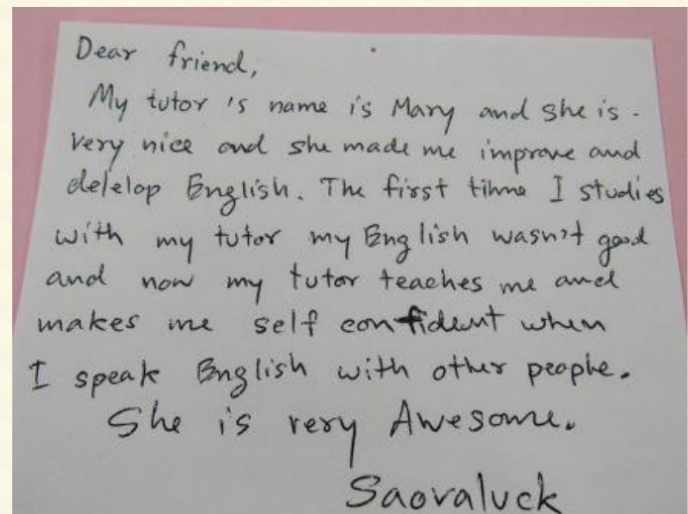 Dear friend,
My tutor 's name is Mary and she is -
very nice and she made me improve and
delelop English. The first tihme I studies
with my tutor my English wasn't good
and now my tutor teaches me and
makes me self confident when
I speak English with other people.
She is very Awesome.
Saovaluck